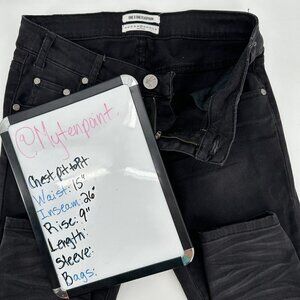 ONE X ONETEASPOON
@Mytenpoint.
Chest Pit to Pit
Waist: 15"
Inseam: 26"
Rise: 9"
Length:
Sleeve:
Bags: